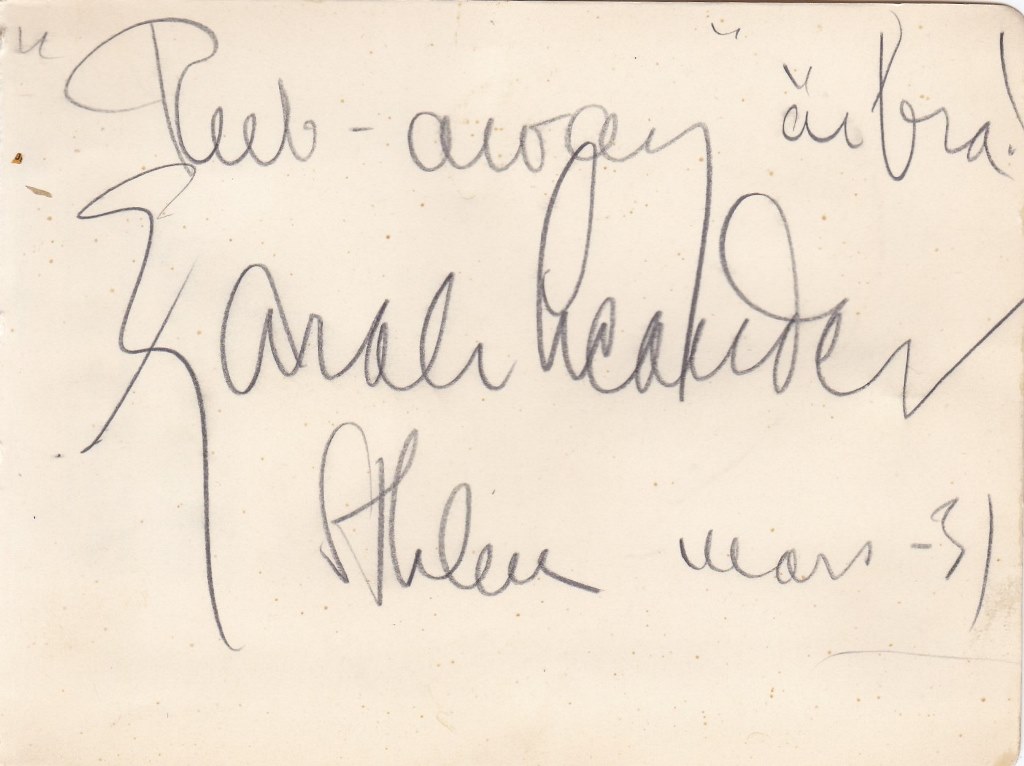 "Rub-away" är bra!
Zarah Leander
Sthlm mars -31